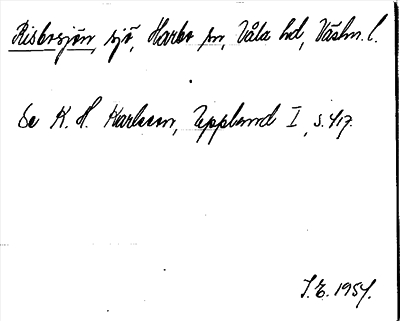 Risbosjön, sjö, Harbo sn, Våla hd, Västm. l.
Se K. H. Karlsson, Uppland I, s. 417.
J. E. 1954.